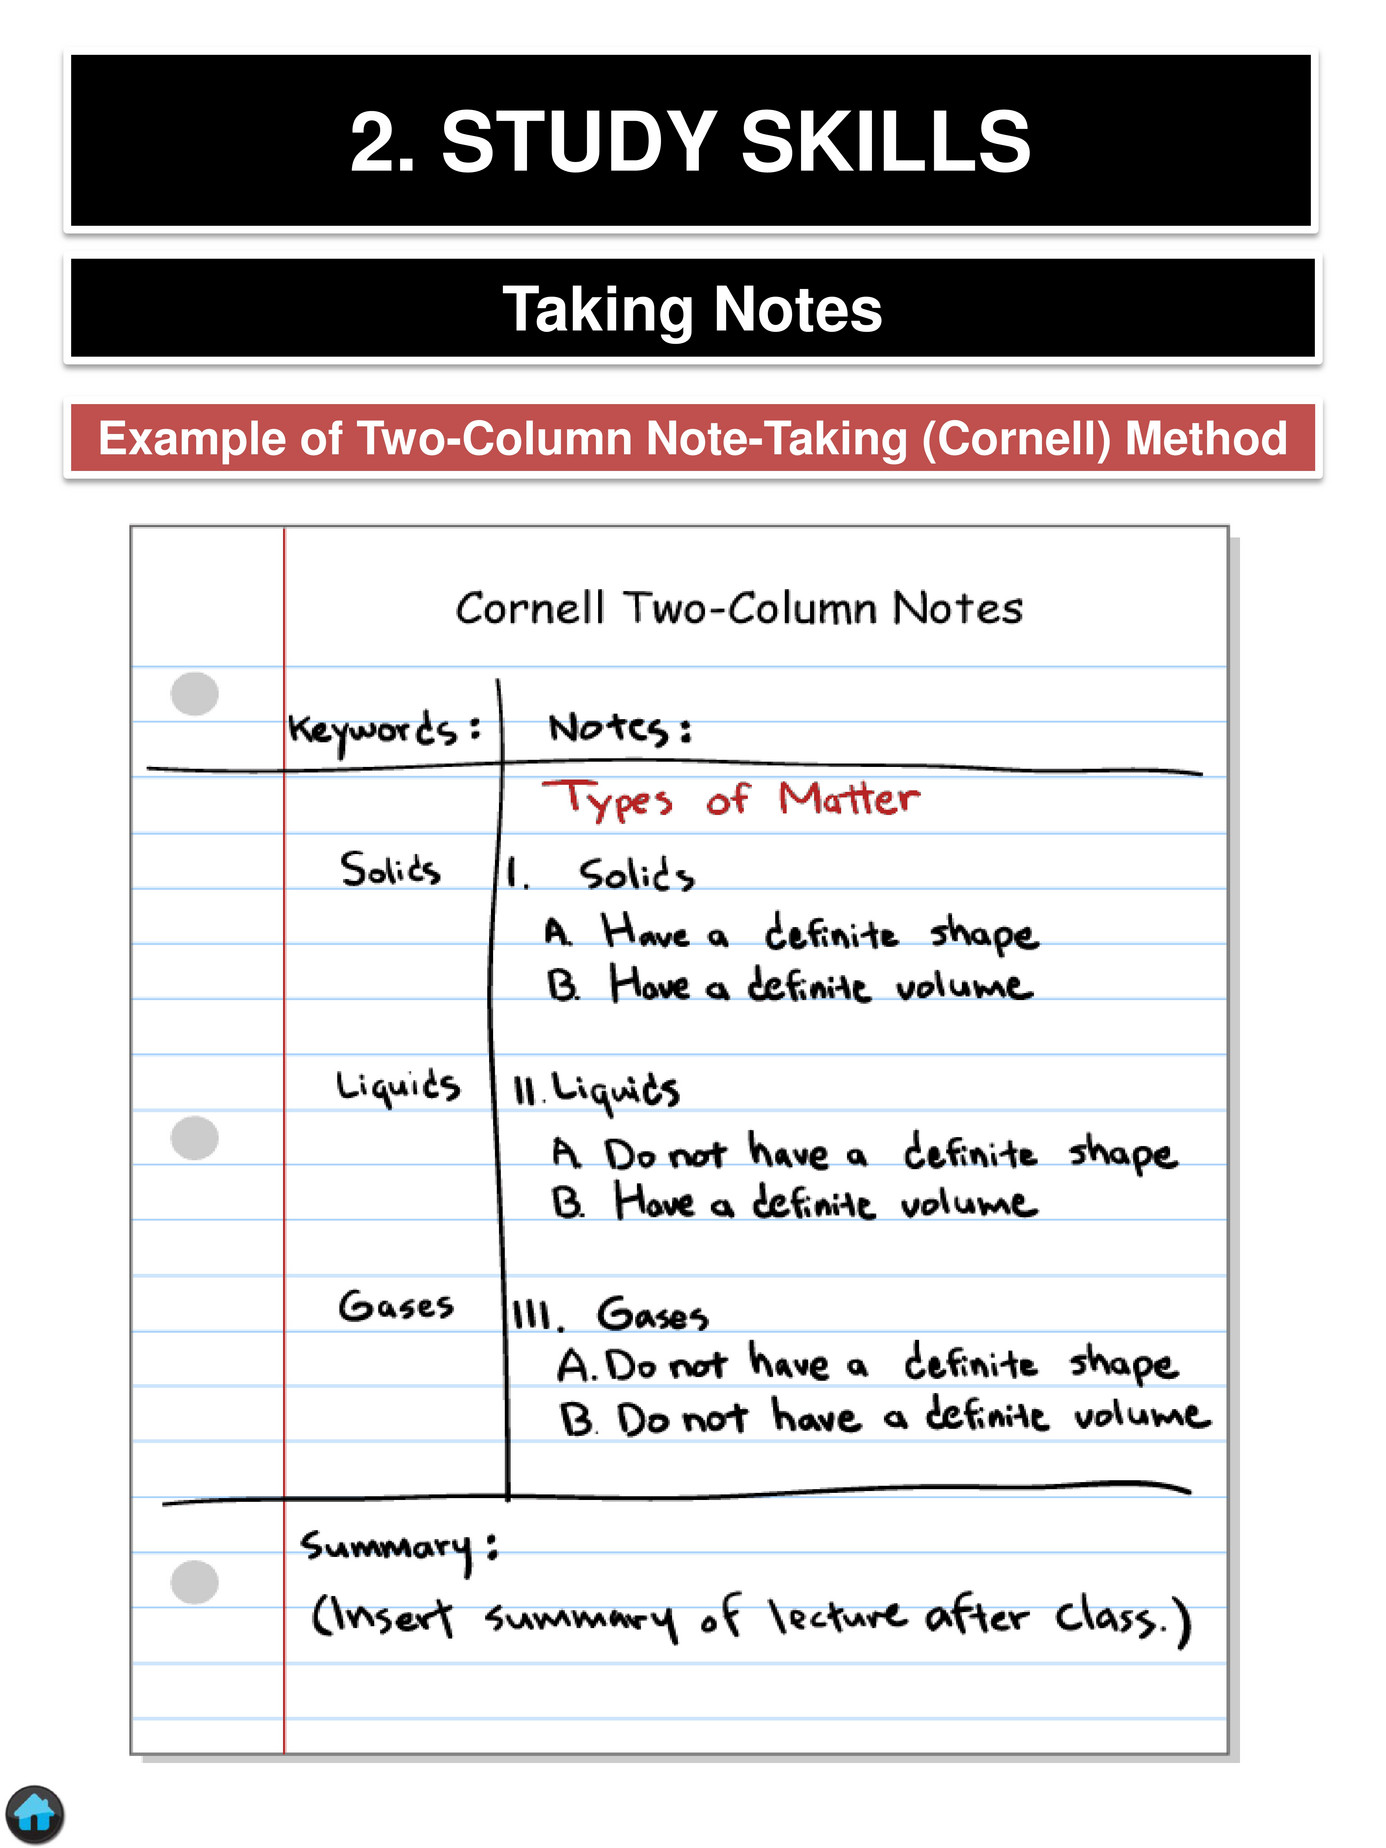 2. STUDY SKILLS
Taking Notes
Example of Two-Column Note-Taking (Cornell) Method
Cornell Two-Column Notes
Keywords: Notes:
Types of Matter
Solids I. Solids
A. Have a definite shape
B. Have a definite volume
Liquids II. Liquids
A. Do not have a definite shape
B. Have a definite volume
Gases III. Gases
A. Do not have a definite shape
B. Do not have a definite volume
Summary:
(Insert summary of lecture after class.)